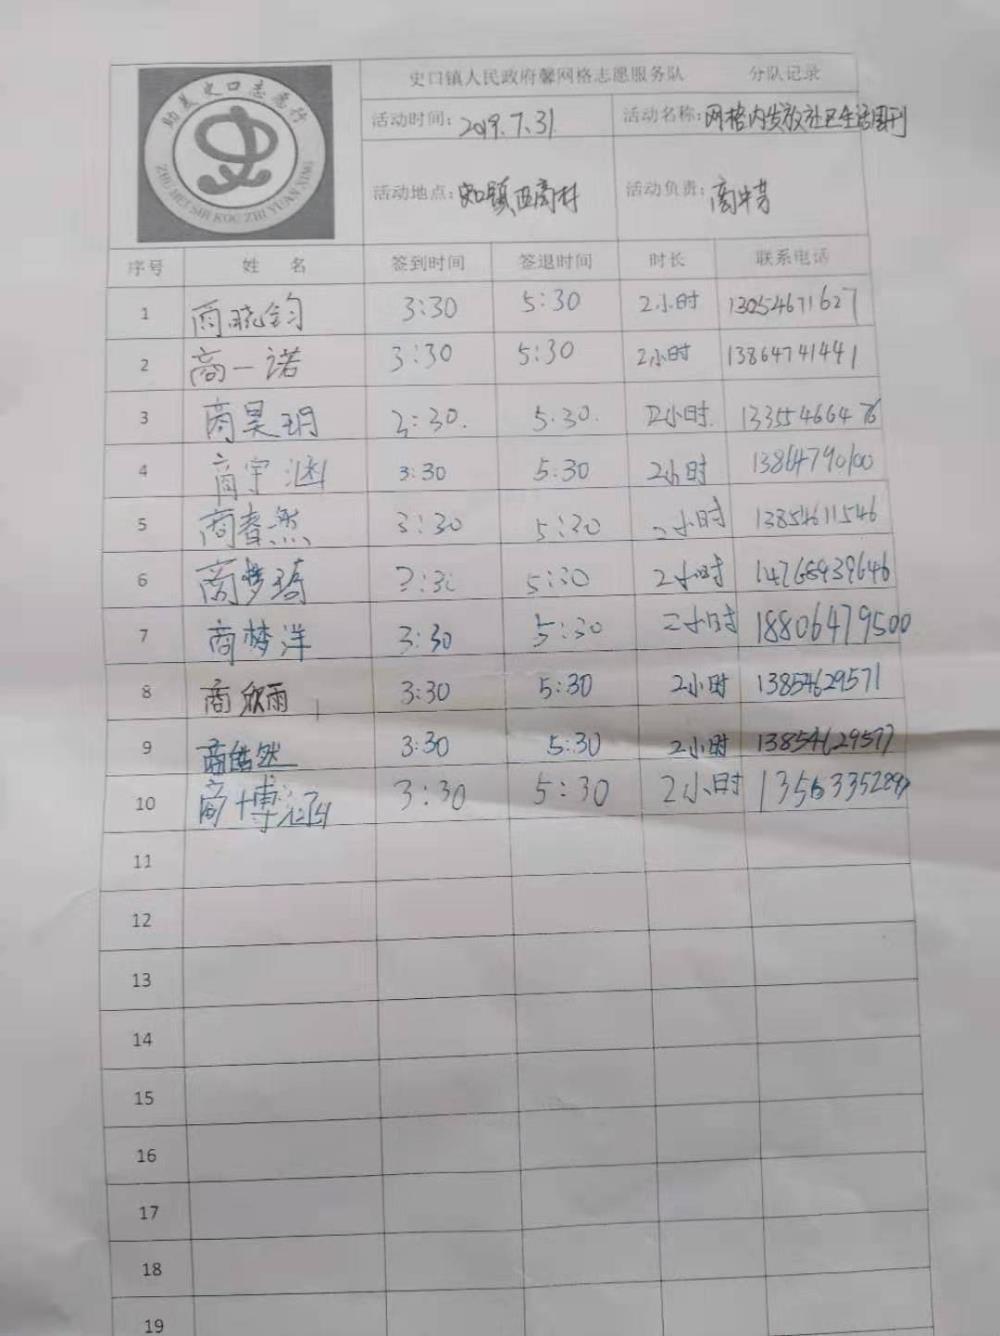 助美史口志愿行
ZHU MEI SHI KOU ZHI YUAN XING
史口镇人民政府馨网格志愿服务队 分队记录
活动时间: 2019.7.31 活动名称: 网格内发放社区生活周刊
活动地点: 史口镇西商村 活动负责: 商
序号 姓 名 签到时间 签退时间 时长 联系电话
1 商晓钧 3:30 5:30 2小时 13054671627
2 商一诺 3:30 5:30 2小时 13864741441
3 商昊玥 3:30. 5.30. 2小时. 13355466476
4 商宇涵 3:30 5:30 2小时 13864790100
5 商春然 3:30 5:30 2小时 13854611546
6 商梦琦 3:30 5:30 2小时 14768939646
7 商梦洋 3:30 5:30 2小时 18806479500
8 商欣雨 3:30 5:30 2小时 13854629571
9 商皓然 3:30 5:30 2小时 13854629577
10 商博涵 3:30 5:30 2小时
11
12
13
14
15
16
17
18
19